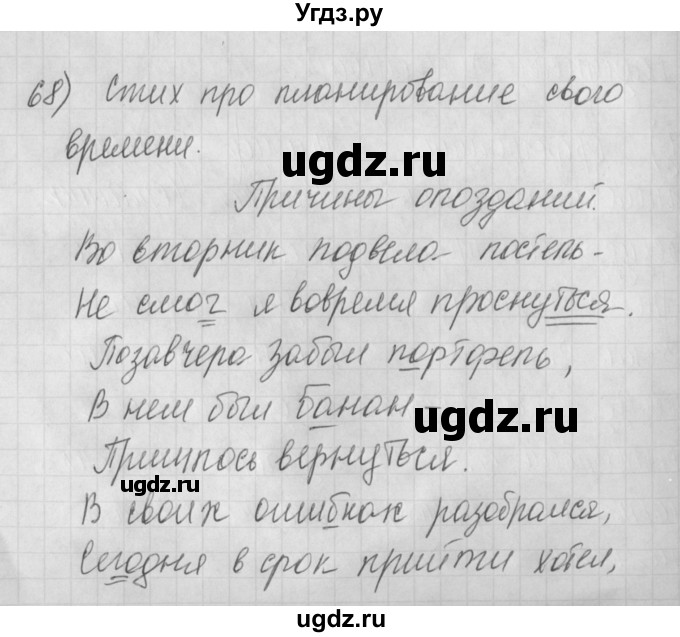 Угдз.ру
68) Стих про планирование свого
времени.
ugdz.ru
Причины опозданий.
Во вторник подвела постель-
Не смог я вовремя проснуться.
Позавчера забыл портфель,
В нем был банан-
ugdz.ru
Пришлось вернуться.
ugdz.ru
В своих ошибках разобрался,
Сегодня в срок прийти хотел,
ugdz.ru